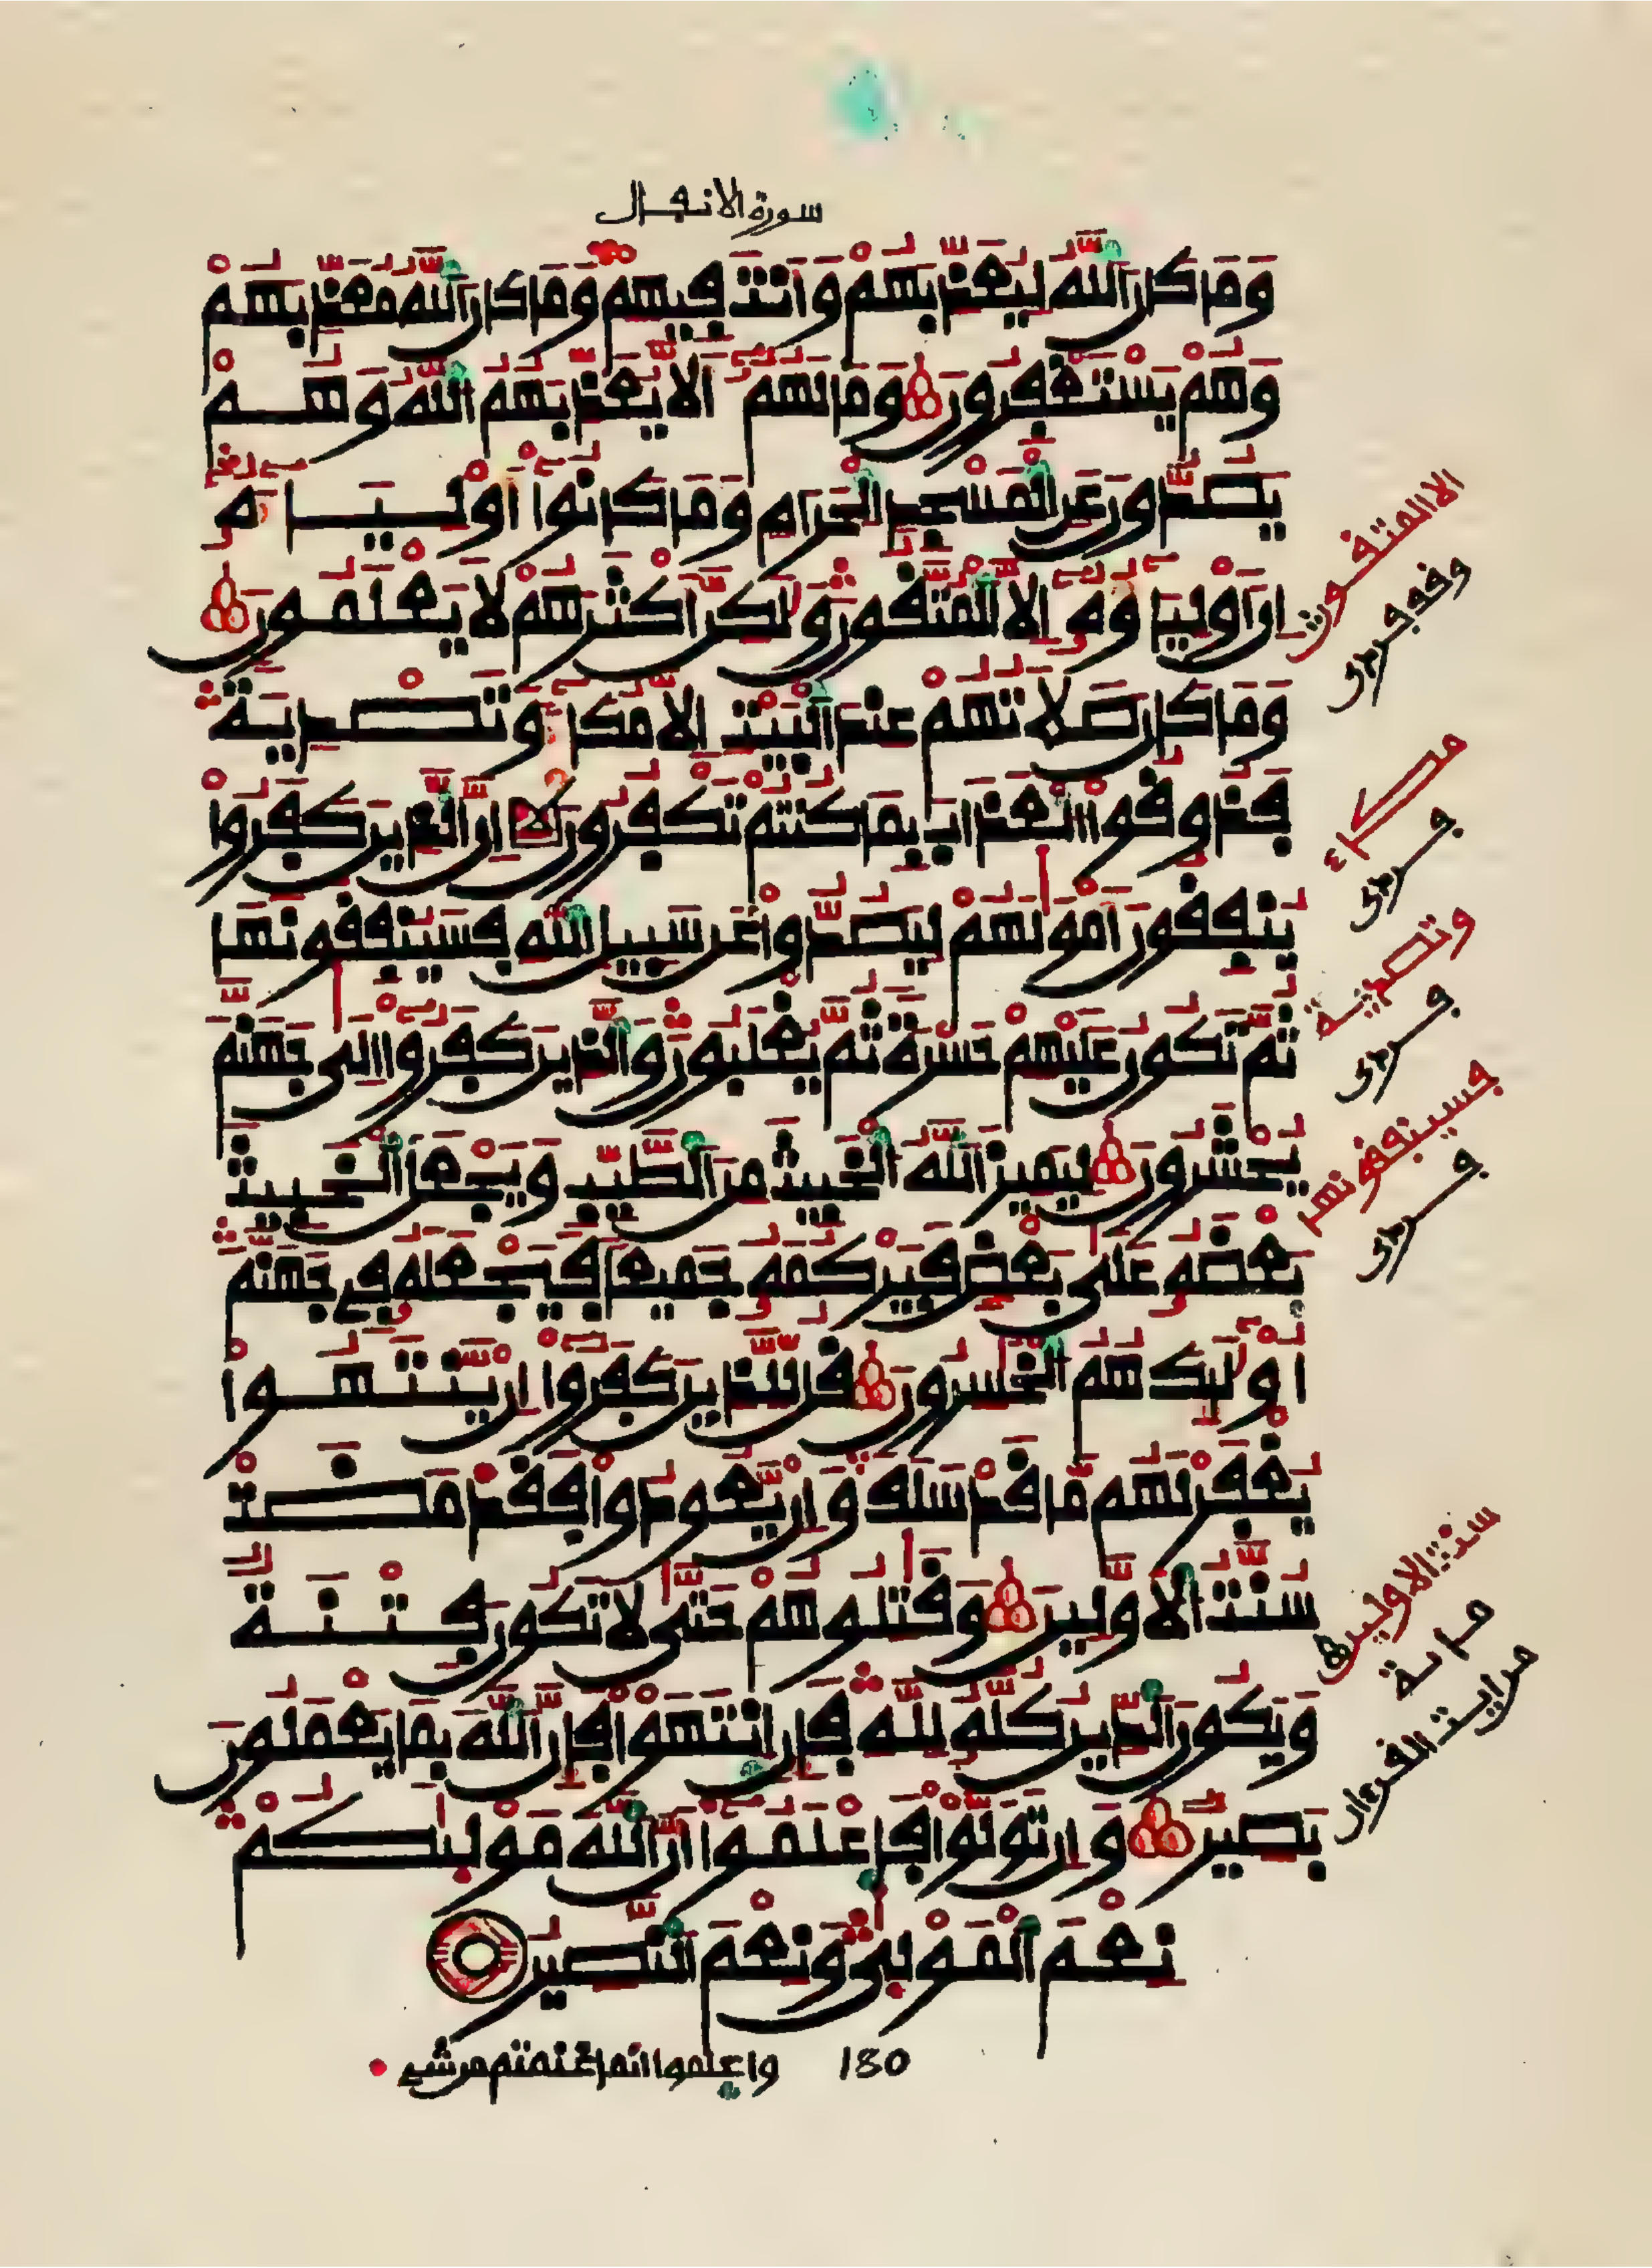 سورة الانفال
وَمَا كَانَ اَللَّهُ لِيُعَذِّبَهُمْ وَأَنتَ فِيهِمْ وَمَا كَانَ اَللَّهُ مُعَذِّبَهُمْ
وَهُمْ يَسْتَغْفِرُونَ وَمَا لَهُمُ أَلَّا يُعَذِّبَهُمُ اُللَّهُ وَهُمْ
يَصُدُّونَ عَنِ اِلْمَسْجِدِ اِلْحَرَامِ وَمَا كَانُوا أَوْلِيَاءَهُ
إِنَ اَوْلِيَاؤُهُ إِلَّا اَلْمُتَّقُونَ وَلَٰكِنَّ أَكْثَرَهُمْ لَا يَعْلَمُونَ
وَمَا كَانَ صَلَاتُهُمْ عِندَ اَلْبَيْتِ إِلَّا مُكَاءً وَتَصْدِيَةً
فَذُوقُوا اُلْعَذَابَ بِمَا كُنتُمْ تَكْفُرُونَ إِنَّ اَلَّذِينَ كَفَرُوا
يُنفِقُونَ أَمْوَٰلَهُمْ لِيَصُدُّوا عَن سَبِيلِ اِللَّهِ فَسَيُنفِقُونَهَا
ثُمَّ تَكُونُ عَلَيْهِمْ حَسْرَةً ثُمَّ يُغْلَبُونَ وَالَّذِينَ كَفَرُوا إِلَىٰ جَهَنَّمَ
يُحْشَرُونَ لِيَمِيزَ اَللَّهُ اُلْخَبِيثَ مِنَ اَلطَّيِّبِ وَيَجْعَلَ اَلْخَبِيثَ
بَعْضَهُ عَلَىٰ بَعْضٍ فَيَرْكُمَهُ جَمِيعًا فَيَجْعَلَهُ فِي جَهَنَّمَ
أُوْلَٰئِكَ هُمُ اُلْخَٰسِرُونَ قُل لِّلَّذِينَ كَفَرُوا إِنْ يَّنتَهُوا
يُغْفَرْ لَهُم مَّا قَدْ سَلَفَ وَإِنْ يَّعُودُوا فَقَدْ مَضَتْ
سُنَّتُ اُلْأَوَّلِينَ وَقَٰتِلُوهُمْ حَتَّىٰ لَا تَكُونَ فِتْنَةٌ
وَيَكُونَ اَلدِّينُ كُلُّهُ لِلَّهِ فَإِنِ اِنتَهَوْا فَإِنَّ اَللَّهَ بِمَا يَعْمَلُونَ
بَصِيرٌ وَإِن تَوَلَّوْا فَاعْلَمُوا أَنَّ اَللَّهَ مَوْلَىٰكُمْ
نِعْمَ اَلْمَوْلَىٰ وَنِعْمَ اَلنَّصِيرُ
180 واعلموا انما غنمتم من شيء
الا المتقون
وقف
مكاء
وتصدية
فسينفقونها
سنت الاولين